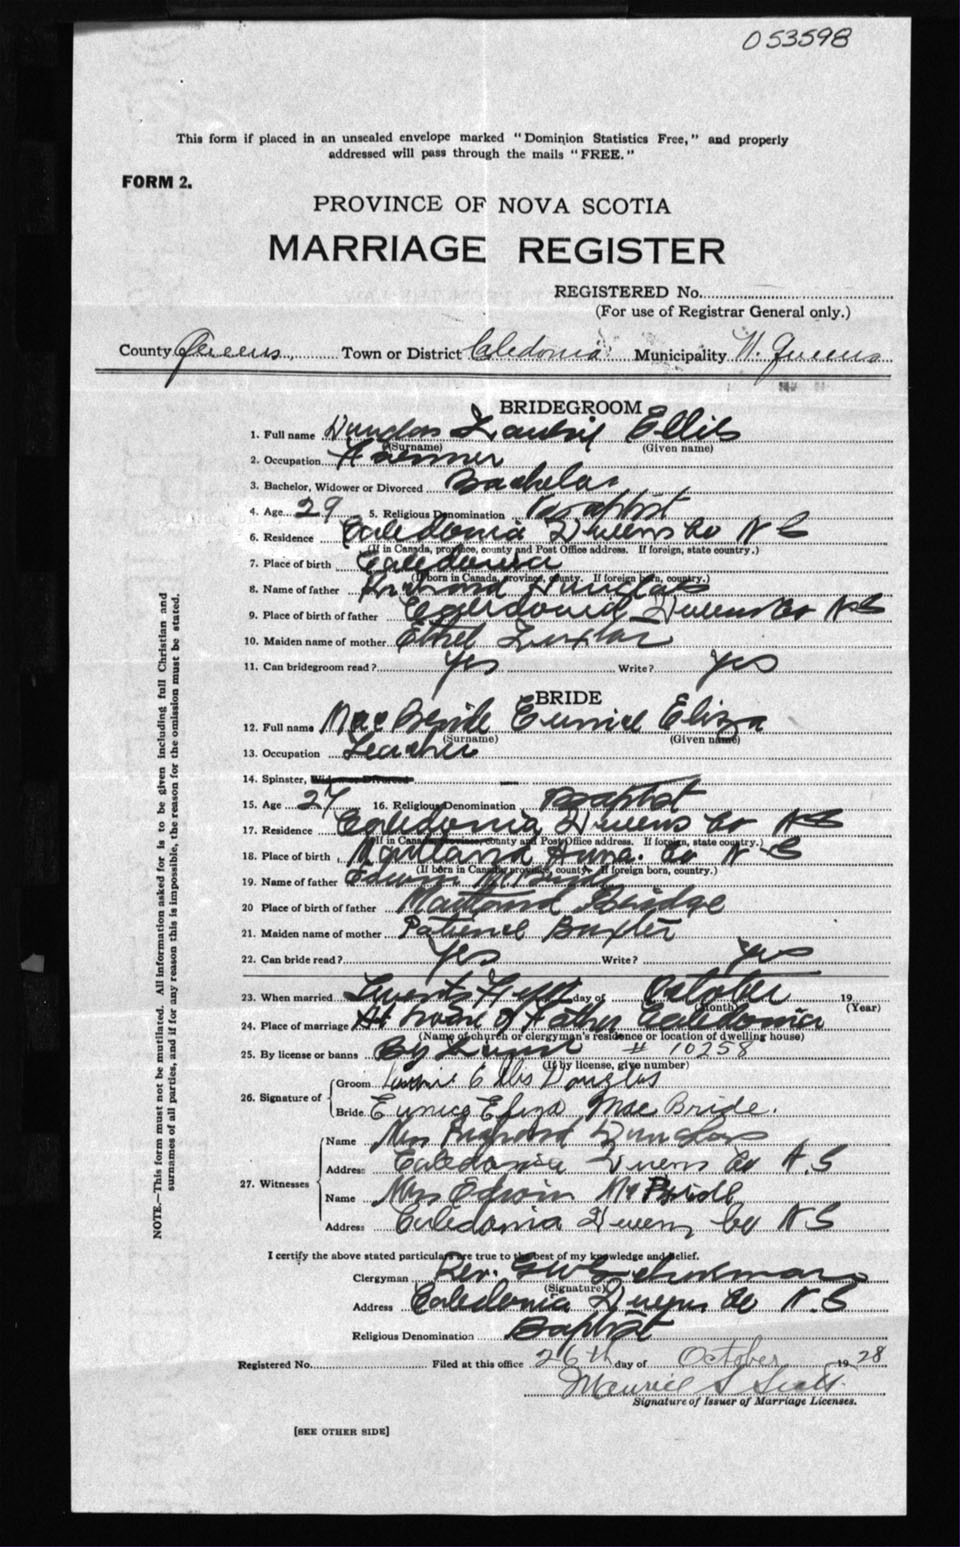 053598
This form if placed in an unsealed envelope marked "Dominion Statistics Free," and properly
addressed will pass through the mails "FREE."
FORM 2.
PROVINCE OF NOVA SCOTIA
MARRIAGE REGISTER
REGISTERED No.
(For use of Registrar General only.)
County Queens Town or District Caledonia Municipality N. Queens
BRIDEGROOM
1. Full name Douglas Laurie Ellis
(Surname) (Given name)
2. Occupation Farmer
3. Bachelor, Widower or Divorced Bachelor
4. Age 29 5. Religious Denomination Baptist
6. Residence Caledonia Queens Co N S
(If in Canada, province, county and Post Office address. If foreign, state country.)
7. Place of birth Caledonia
(If born in Canada, province, county. If foreign born, country.)
8. Name of father Douglas
9. Place of birth of father Caledonia Queens Co N S
10. Maiden name of mother Ethel
11. Can bridegroom read? Yes Write? Yes
BRIDE
12. Full name MacBride Eunice Eliza
(Surname) (Given name)
13. Occupation Teacher
14. Spinster, Widow or Divorced
15. Age 27 16. Religious Denomination Baptist
17. Residence Caledonia Queens Co N S
(If in Canada, province, county and Post Office address. If foreign, state country.)
18. Place of birth Maitland Anna. Co N S
(If born in Canada, province, county. If foreign born, country.)
19. Name of father Edwin McBride
20 Place of birth of father Maitland Bridge
21. Maiden name of mother Patience Baxter
22. Can bride read? Yes Write? Yes
23. When married Twenty First day of October 19
(Month) (Year)
24. Place of marriage At home of Father Caledonia
(Name of church or clergyman's residence or location of dwelling house)
25. By license or banns By # 10258
(If by license, give number)
26. Signature of
Groom Laurie Ellis Douglas
Bride Eunice Eliza MacBride.
27. Witnesses
Name Mrs Douglas
Address Caledonia Queens Co N.S
Name Mrs Edwin McBride
Address Caledonia Queens Co N S
I certify the above stated particulars are true to the best of my knowledge and belief.
Clergyman Rev.
(Signature)
Address Caledonia Queens Co N.S
Religious Denomination Baptist
Registered No. Filed at this office 26th day of October 19 28
Maurice S
Signature of Issuer of Marriage Licenses.
[SEE OTHER SIDE]
NOTE.—This form must not be mutilated. All information asked for is to be given including full Christian and
surnames of all parties, and if for any reason this is impossible, the reason for the omission must be stated.